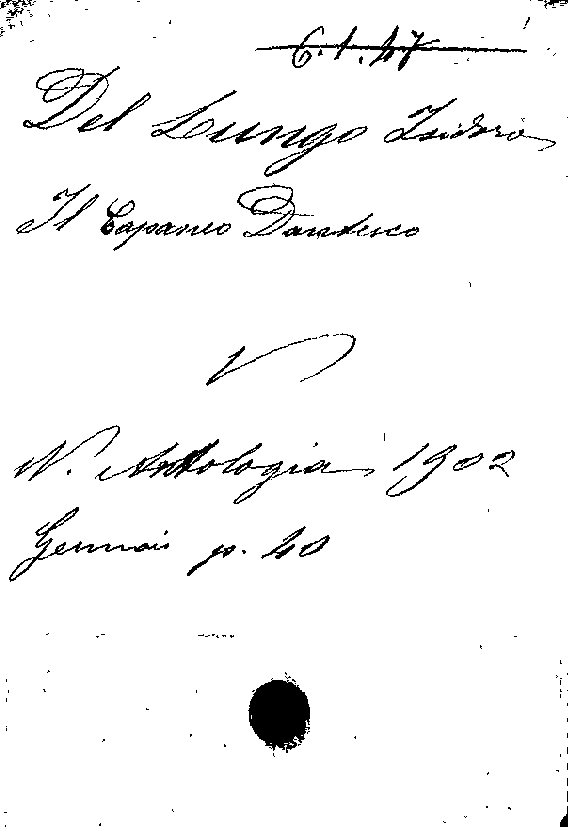 6.1.47
Del Lungo Isidoro
Il Capaneo Dantesco
V
N. Antologia 1902
Gennaio p. 40